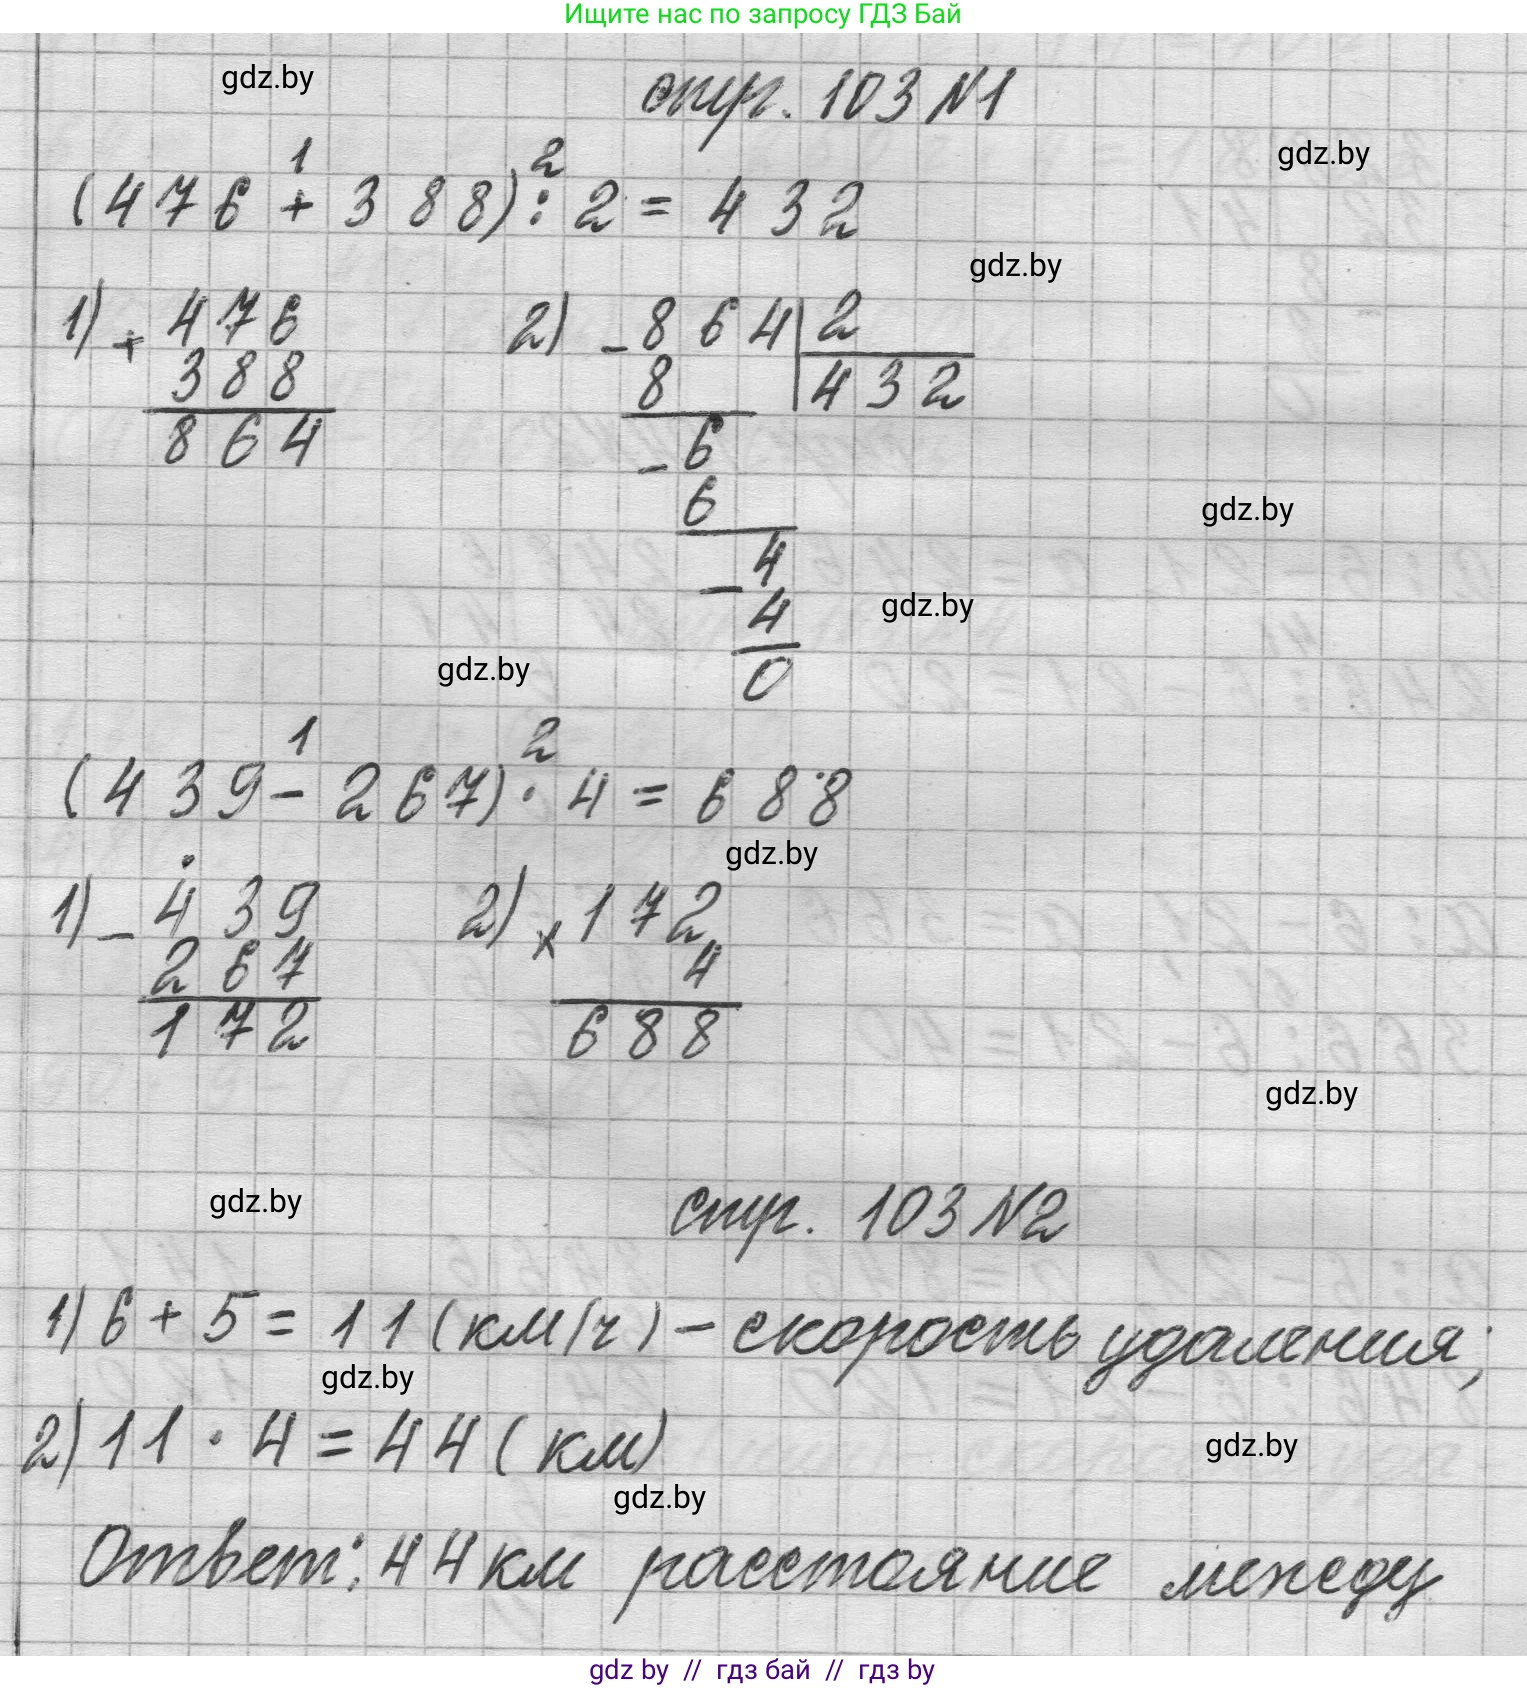 Ищите нас по запросу ГДЗ Бай
gdz.by
стр. 103 №1
gdz.by
1 2
(476 + 388) : 2 = 432
gdz.by
1) + 476
388
864
2) - 864 | 2
8 432
- 6
6
- 4
4
0
gdz.by
gdz.by
gdz.by
1 2
(439 - 267) · 4 = 688
gdz.by
1) - 439
267
172
2) × 172
4
688
gdz.by
gdz.by
стр. 103 №2
1) 6 + 5 = 11 (км/ч) - скорость удаления;
gdz.by
2) 11 · 4 = 44 (км)
gdz.by
gdz.by
Ответ: 44 км расстояние между
gdz by // гдз бай // гдз by